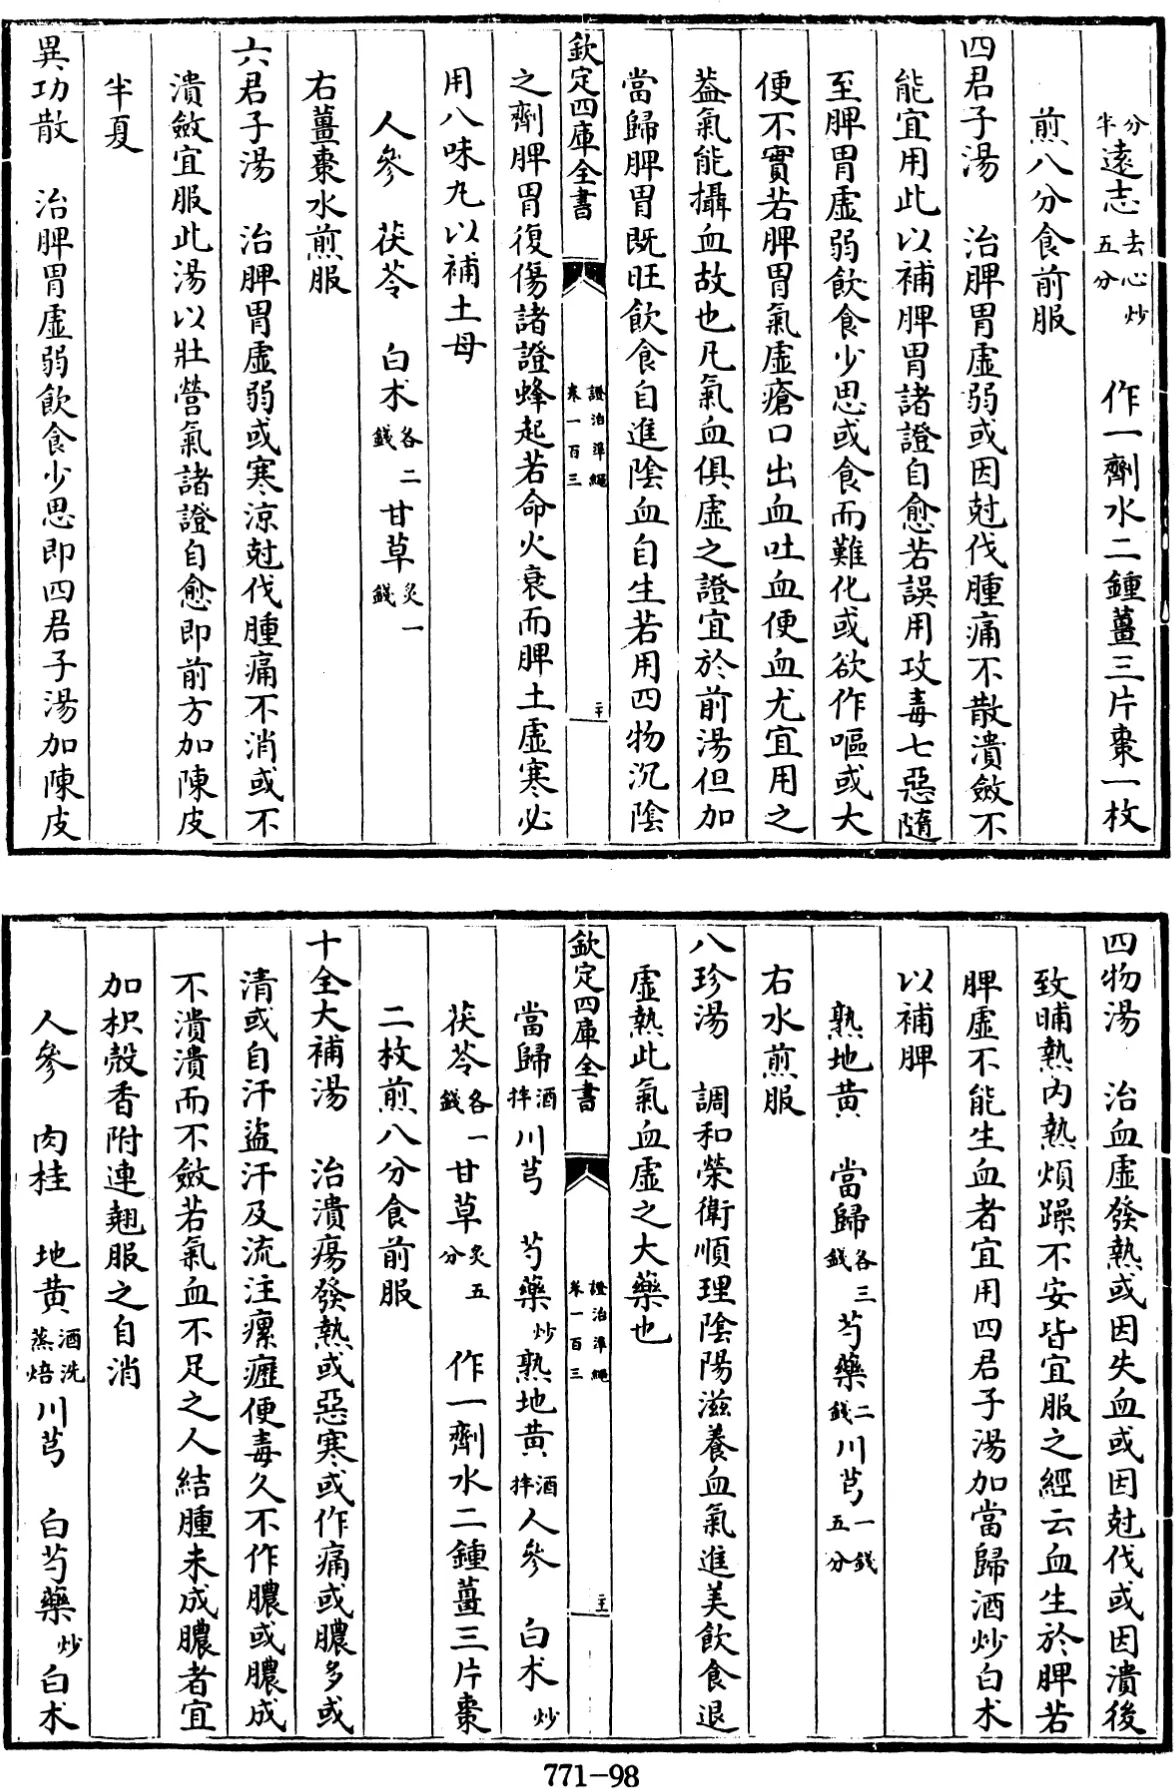 分半遠志去心炒五分　作一劑水二鍾薑三片棗一枚
煎八分食前服
四君子湯　治脾胃虛弱或因尅伐腫痛不散潰斂不
能宜用此以補脾胃諸證自愈若誤用攻毒七惡隨
至脾胃虛弱飲食少思或食而難化或欲作嘔或大
便不實若脾胃氣虛瘡口出血吐血便血尤宜用之
葢氣能攝血故也凡氣血俱虛之證宜於前湯但加
當歸脾胃既旺飲食自進陰血自生若用四物沉陰
欽定四庫全書　證治準繩卷一百三　二十
之劑脾胃復傷諸證蜂起若命火衰而脾土虛寒必
用八味丸以補土母
人參　茯苓　白术各二錢　甘草炙一錢
右薑棗水煎服
六君子湯　治脾胃虛弱或寒涼尅伐腫痛不消或不
潰斂宜服此湯以壯營氣諸證自愈即前方加陳皮
半夏
異功散　治脾胃虛弱飲食少思即四君子湯加陳皮
四物湯　治血虛發熱或因失血或因尅伐或因潰後
致晡熱内熱煩躁不安皆宜服之經云血生於脾若
脾虛不能生血者宜用四君子湯加當歸酒炒白术
以補脾
熟地黄　當歸各三錢　芍藥二錢　川芎一錢五分
右水煎服
八珍湯　調和榮衛順理陰陽滋養血氣進美飲食退
虛熱此氣血虛之大藥也
欽定四庫全書　證治準繩卷一百三　二十一
當歸酒拌　川芎　芍藥炒　熟地黄酒拌　人參　白术炒
茯苓各一錢　甘草炙五分　作一劑水二鍾薑三片棗
二枚煎八分食前服
十全大補湯　治潰瘍發熱或惡寒或作痛或膿多或
清或自汗盜汗及流注瘰癧便毒久不作膿或膿成
不潰潰而不斂若氣血不足之人結腫未成膿者宜
加枳殼香附連翹服之自消
人參　肉桂　地黄酒洗蒸焙　川芎　白芍藥炒　白术
771-98